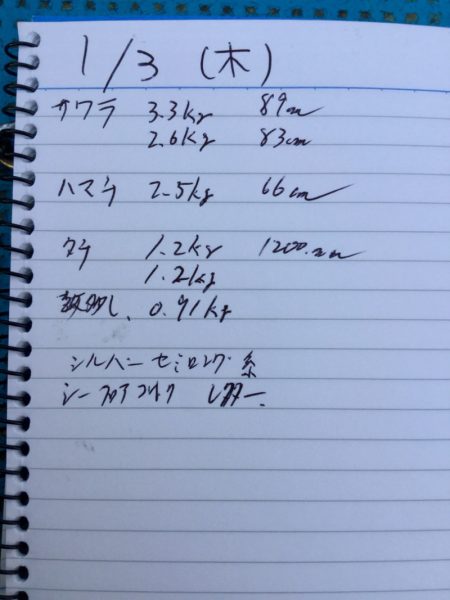 1/3 (木)
サワラ 3.3kg 89cm
2.6kg 83cm
ハマチ 2.5kg 66cm
タチ 1.2kg 1200mm
1.2kg
数多し、0.91kg
シルバー セミロング 糸
シーフロアコントロール レクター